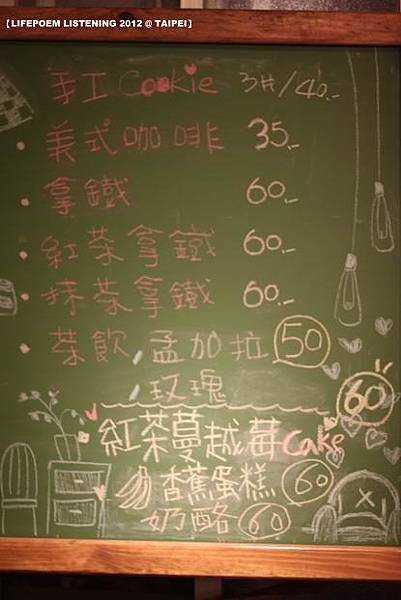 [LIFEPOEM LISTENING 2012 @ TAIPEI]
手工 Cookie 3片/40.-
美式咖啡 35.-
拿鐵 60.-
紅茶拿鐵 60.-
抹茶拿鐵 60.-
茶飲,孟加拉 50
,玫瑰
紅茶蔓越莓Cake 60
香蕉蛋糕 60
奶酪 60